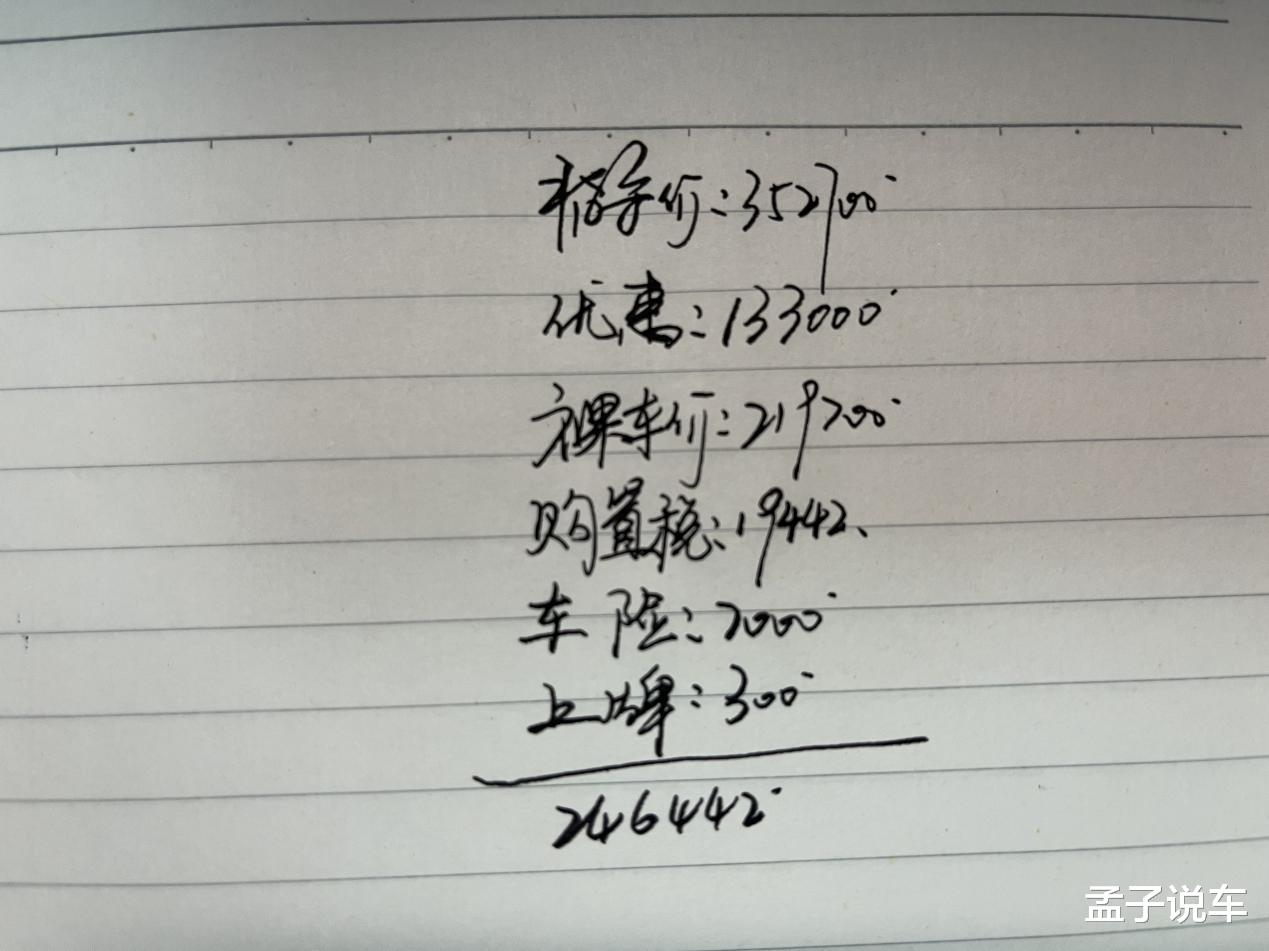 指导价:352700
优惠:133000
裸车价:219700
购置税:19442
车险:7000
上牌:300
246442
孟子说车